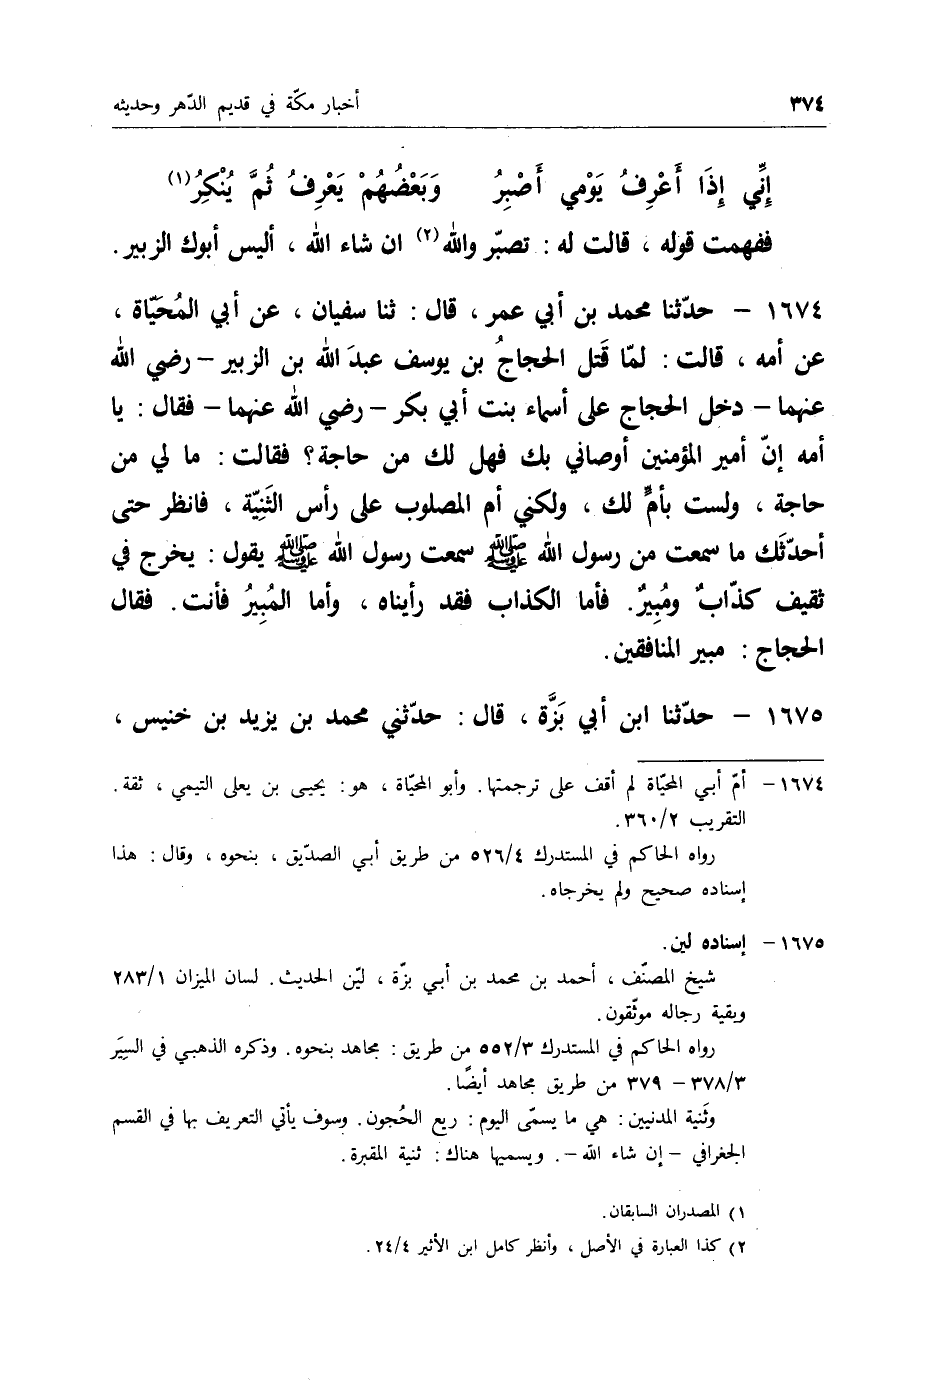 ٣٧٤ أخبار مكّة في قديم الدّهر وحديثه
إِنِّي إِذَا أَعْرِفُ يَوْمي أَصْبِرُ وَبَعْضُهُمْ يَعْرِفُ ثُمَّ يُنْكِرُ(١)
ففهمت قوله ، قالت له : تصبّر والله(٢) ان شاء الله ، أليس أبوك الزبير .
١٦٧٤ – حدّثنا محمد بن أبي عمر ، قال : ثنا سفيان ، عن أبي المُحَيّاة ،
عن أمه ، قالت : لمّا قَتل الحجاجُ بن يوسف عبدَ الله بن الزبير – رضي الله
عنهما – دخل الحجاج على أسماء بنت أبي بكر – رضي الله عنهما – فقال : يا
أمه إنّ أمير المؤمنين أوصاني بك فهل لك من حاجة؟ فقالت : ما لي من
حاجة ، ولست بأمٍّ لك ، ولكني أم المصلوب على رأس الثَنِيّة ، فانظر حتى
أحدّثَك ما سمعت من رسول الله ﷺ سمعت رسول الله ﷺ يقول : يخرج في
ثقيف كذّابٌ ومُبِيرٌ. فأما الكذاب فقد رأيناه ، وأما المُبِيرُ فأنت . فقال
الحجاج : مبير المنافقين .
١٦٧٥ – حدّثنا ابن أبي بَزَّة ، قال : حدّثني محمد بن يزيد بن خنيس ،
١٦٧٤ – أمّ أبي المحيّاة لم أقف على ترجمتها . وأبو المحيّاة ، هو : يحيى بن يعلى التيمي ، ثقة .
التقريب ٣٦٠/٢ .
رواه الحاكم في المستدرك ٥٢٦/٤ من طريق أبي الصدّيق ، بنحوه ، وقال : هذا
إسناده صحيح ولم يخرجاه .
١٦٧٥ – إسناده لين .
شيخ المصنّف ، أحمد بن محمد بن أبي بزّة ، ليّن الحديث . لسان الميزان ٢٨٣/١
وبقية رجاله موثّقون .
رواه الحاكم في المستدرك ٥٥٢/٣ من طريق : مجاهد بنحوه . وذكره الذهبي في السِيَر
٣٧٨/٣ – ٣٧٩ من طريق مجاهد أيضًا .
وثَنية المدنيين : هي ما يسمّى اليوم : ريع الحُجون . وسوف يأتي التعريف بها في القسم
الجغرافي – إن شاء الله – . ويسميها هناك : ثنية المقبرة .
١) المصدران السابقان .
٢) كذا العبارة في الأصل ، وأنظر كامل ابن الأثير ٢٤/٤ .